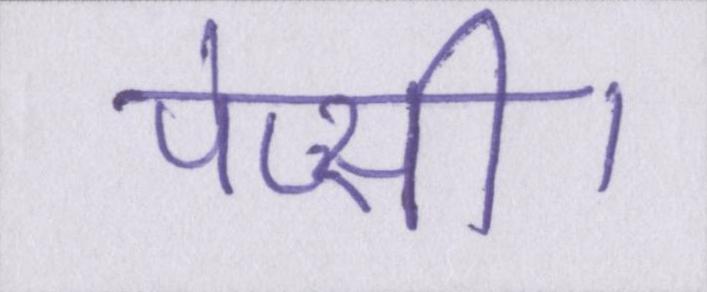 पेप्सी।